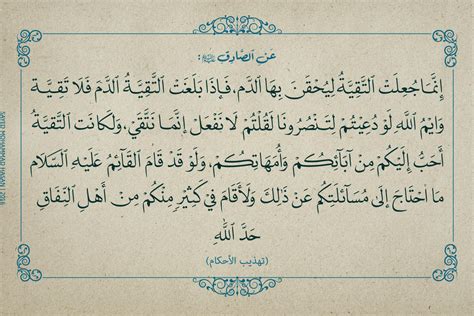 عن الصادق ﷺ:
إنما جعلت التقية ليحقن بها الدم، فإذا بلغت التقية الدم فلا تقية
وايم الله لو دعيتم لتنصرونا لقلتم لا نفعل إنما نتقي، ولكانت التقية
أحب إليكم من آبائكم وأمهاتكم، ولو قد قام القائم عليه السلام
ما احتاج إلى مسائلتكم عن ذلك ولأقام في كثير منكم من أهل النفاق
حد الله
(تهذيب الأحكام)